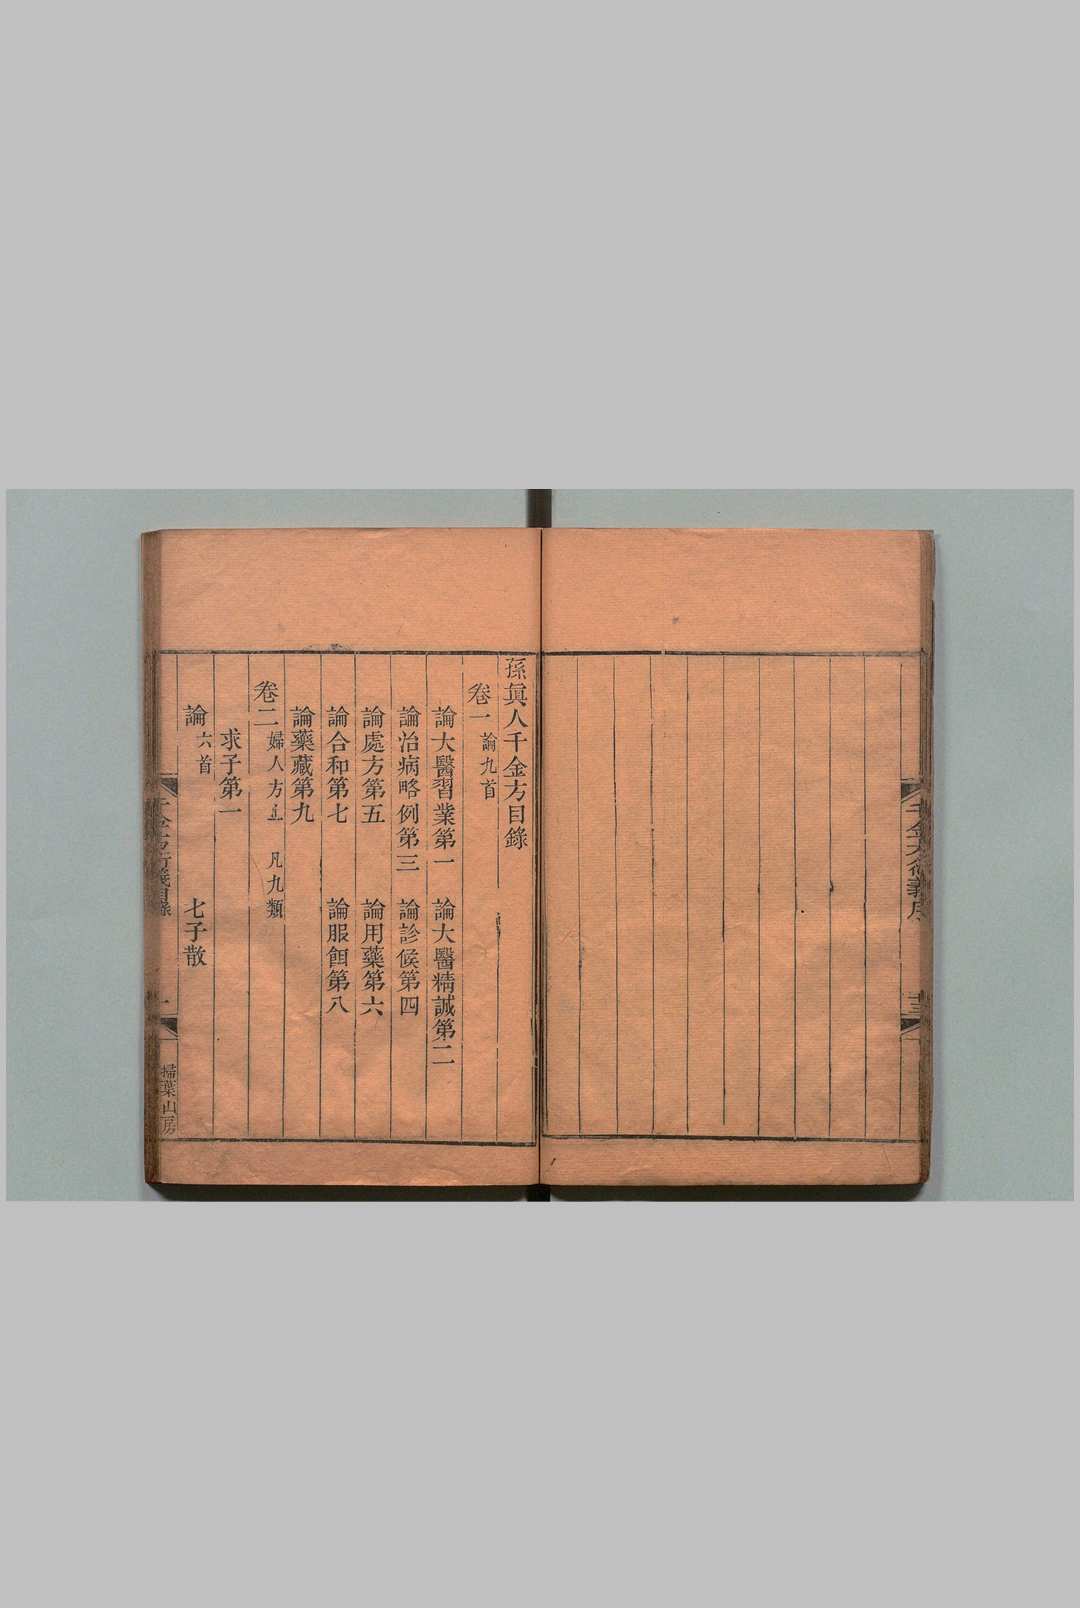 千金方衍義序
十三
孫眞人千金方目錄
卷一 論九首
論大醫習業第一 論大醫精誠第二
論治病略例第三 論診候第四
論處方第五 論用藥第六
論合和第七 論服餌第八
論藥藏第九
卷二 婦人方上 凡九類
求子第一
論六首 七子散
千金方衍義目錄
一
掃葉山房